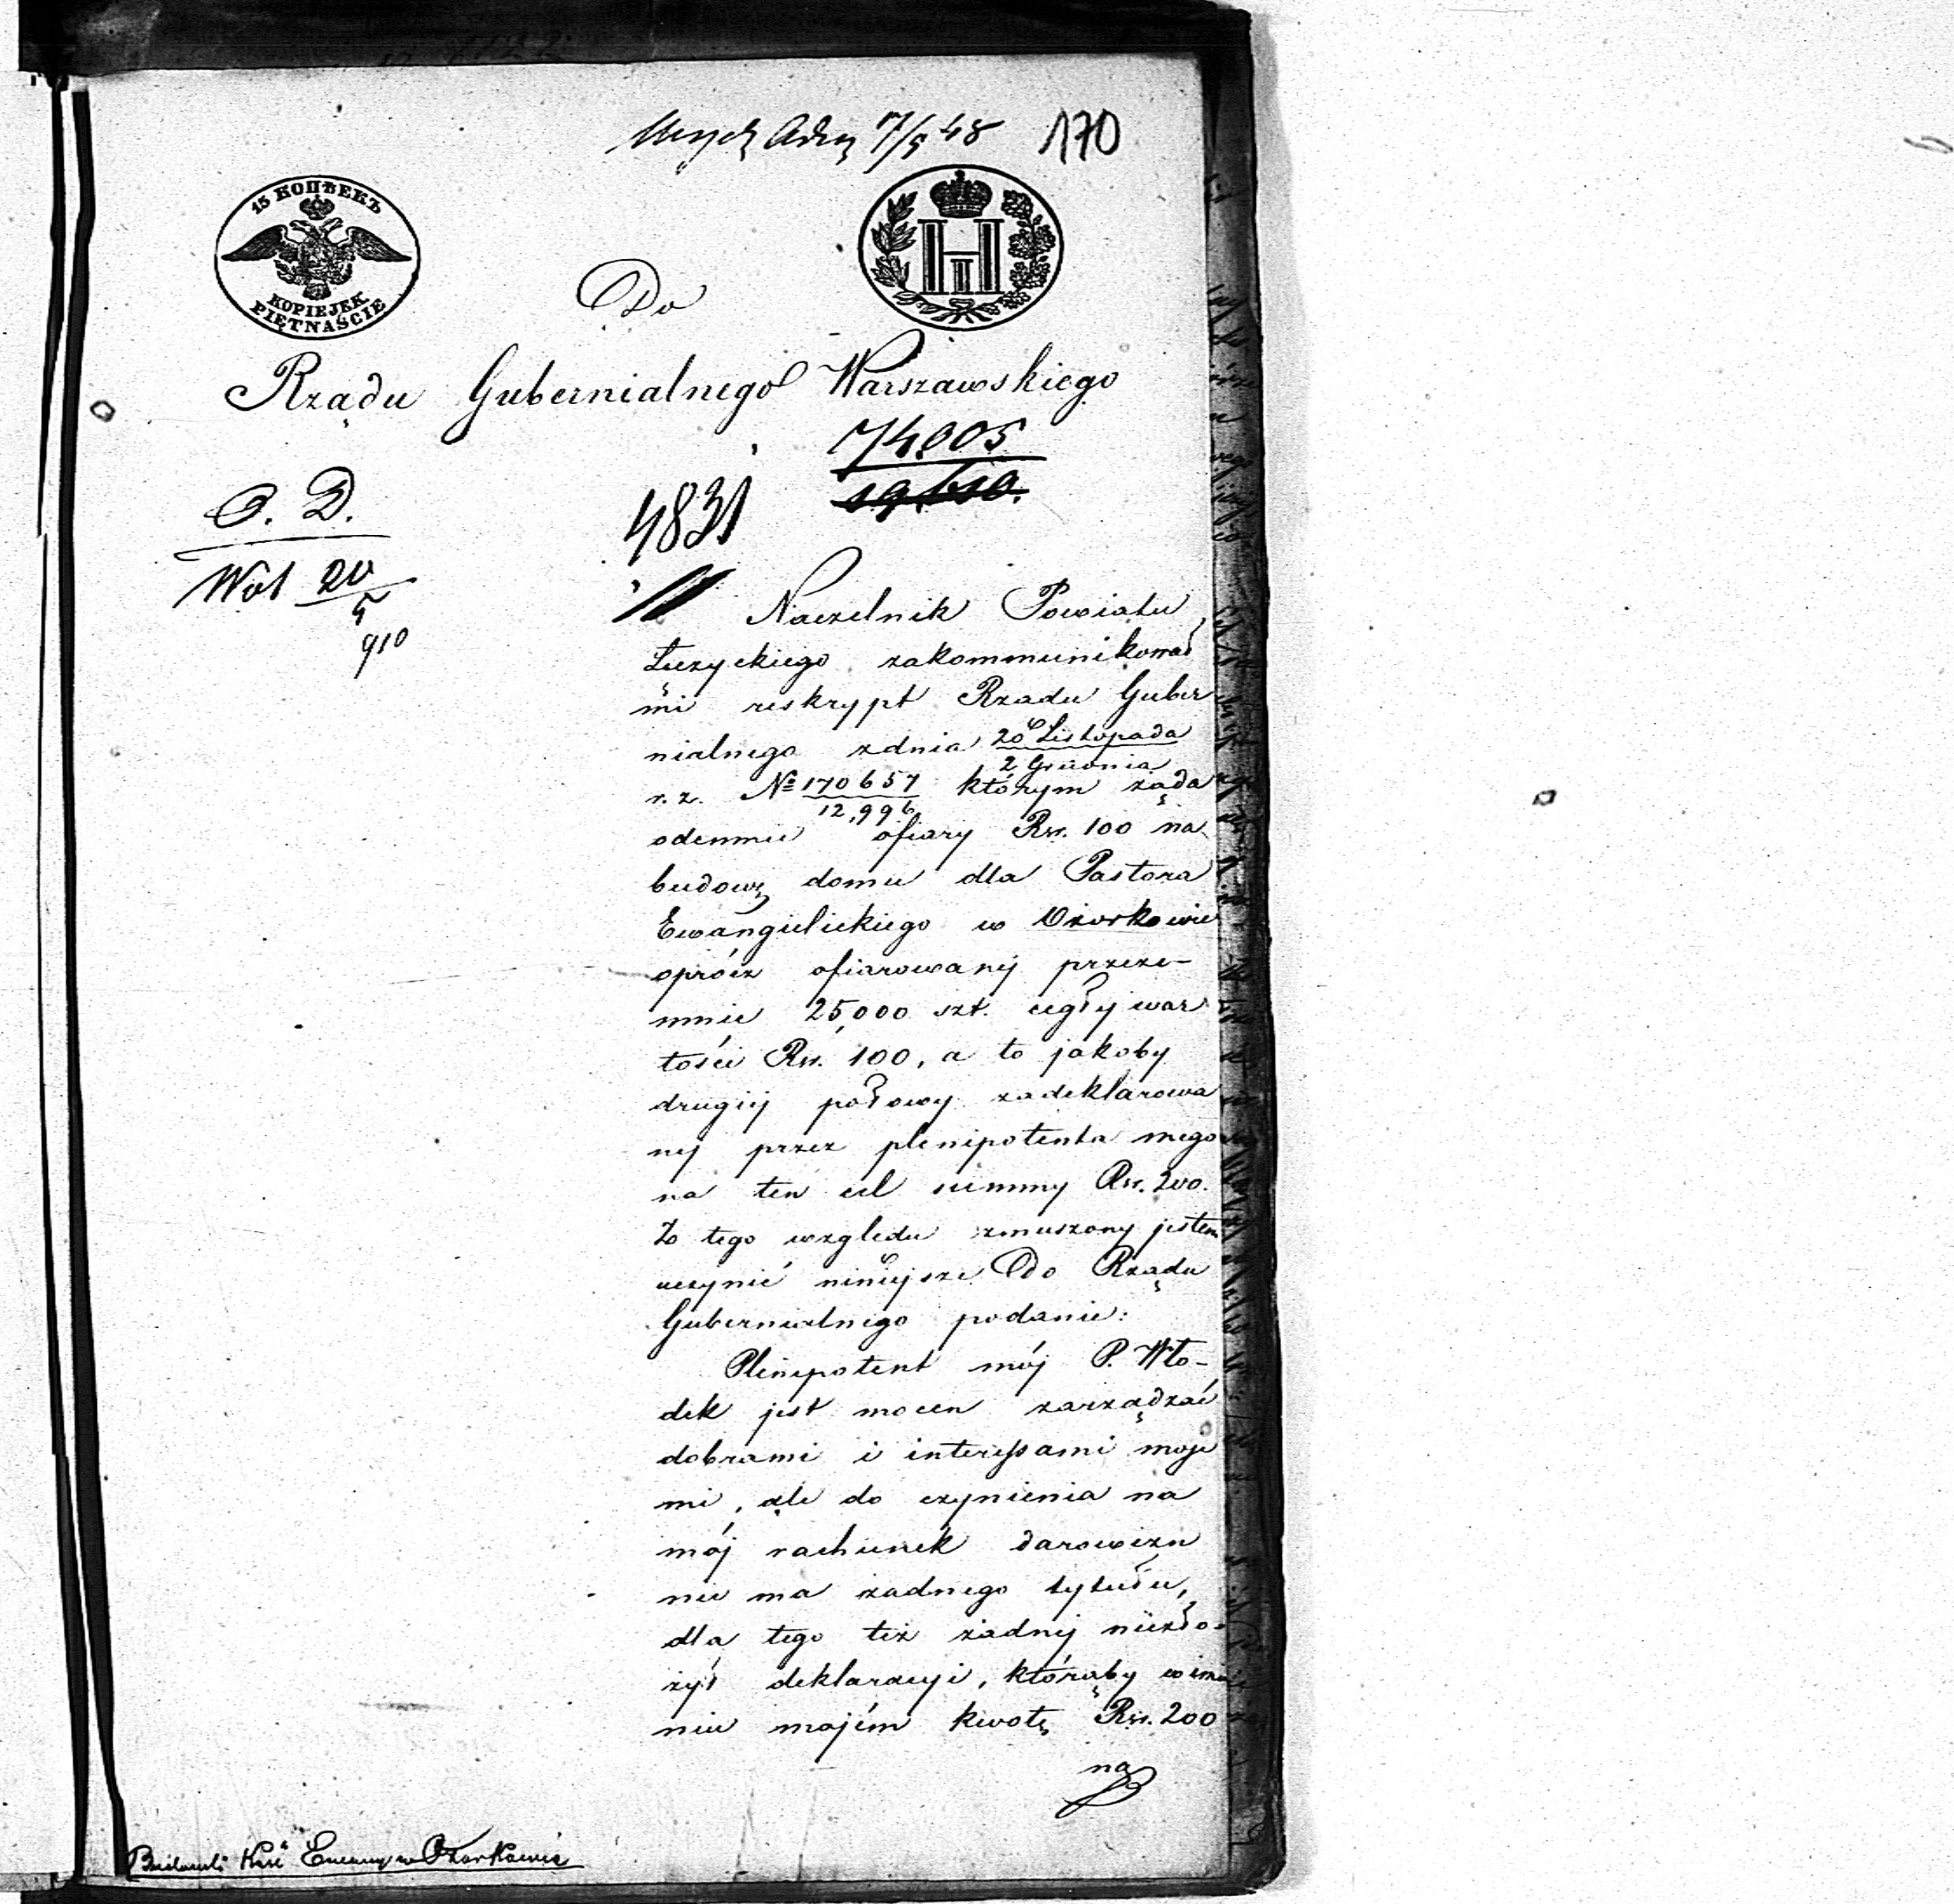 7/5 48 170
15 КОПѢЕКЪ
KOPIEJEK
PIĘTNAŚCIE
Do
Rządu Gubernialnego Warszawskiego
74,005
4831
O. D.
20
5
910
Naczelnik Powiatu
Łęczyckiego zakommunikował
mi reskrypt Rządu Guber
nialnego z dnia 20 Listopada
2 Grudnia
r. z. № 170657 którym żąda
12,996
odemnie ofiary Rsr. 100 na
budowę domu dla Pastora
Ewangielickiego w Ozorkowie
oprócz ofiarowanej przeze-
mnie 25,000 szt. cegły war
tości Rsr. 100, a to jakoby
drugiej połowy zadeklarowa
nej przez plenipotenta mego
na ten cel summy Rsr. 200.
Z tego względu zmuszony jestem
uczynić niniejsze do Rządu
Gubernialnego podanie:
Plenipotent mój P. Wło-
dek jest mocen zarządzać
dobrami i interessami moje
mi, ale do czynienia na
mój rachunek darowizn
nie ma żadnego tytułu,
dla tego też żadnej niezło-
żył deklaracyi, którąby w imie
niu mojém kwotę Rsr. 200
na
w Ozorkowie